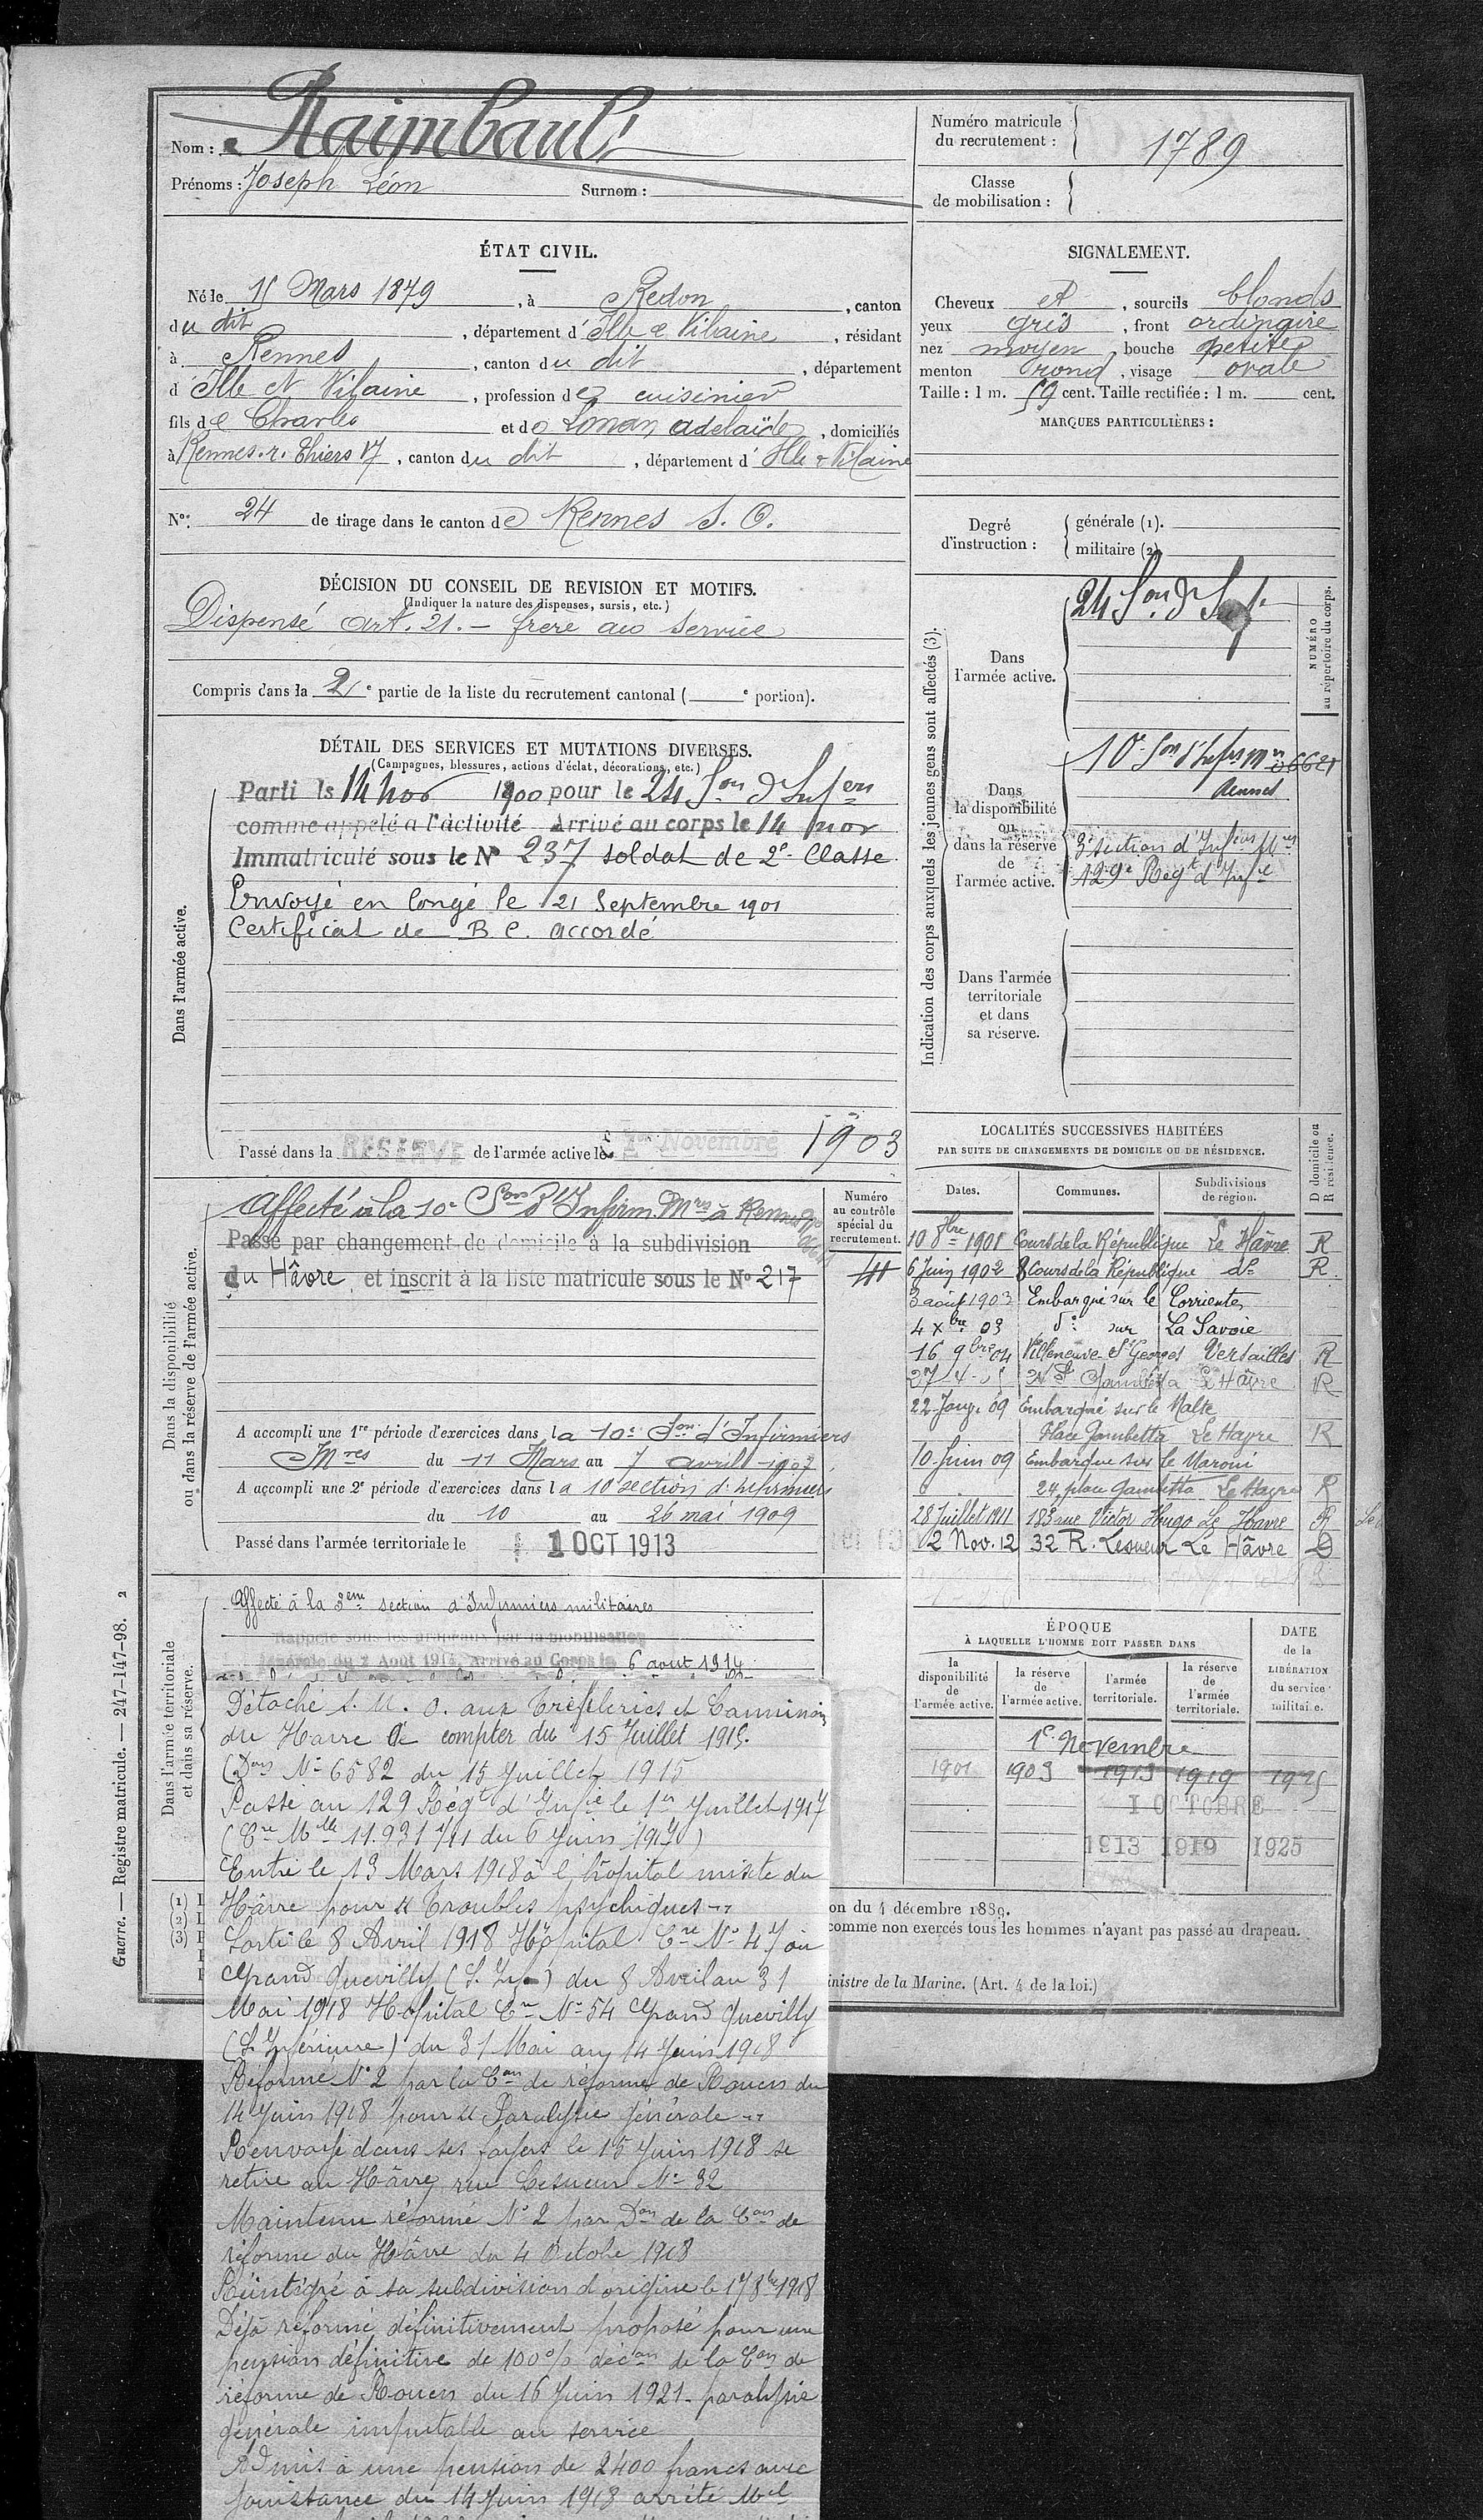 Nom : Raimbault
Prénoms : Joseph Léon Surnom :
Numéro matricule du recrutement : 1789
Classe de mobilisation :
ÉTAT CIVIL.
Né le 15 Mars 1879, à Redon, canton
du dit, département d'Ille & Vilaine, résidant
à Rennes, canton du dit, département
d'Ille et Vilaine, profession de cuisinier
fils de Charles et de Adelaïde, domiciliés
à Rennes. r. Thiers 17, canton du dit, département d'Ille & Vilaine
N°: 24 de tirage dans le canton de Rennes S. O.
SIGNALEMENT.
Cheveux et, sourcils blonds
yeux gris, front ordinaire
nez moyen, bouche petite
menton rond, visage ovale
Taille : 1 m. 59 cent. Taille rectifiée : 1 m. cent.
MARQUES PARTICULIÈRES :
Degré d'instruction : générale (1).
militaire (2)
DÉCISION DU CONSEIL DE REVISION ET MOTIFS.
(Indiquer la nature des dispenses, sursis, etc.)
Dispensé art. 21. – frère au service
Compris dans la 2e partie de la liste du recrutement cantonal ( e portion).
DÉTAIL DES SERVICES ET MUTATIONS DIVERSES.
(Campagnes, blessures, actions d'éclat, décorations, etc.)
Dans l'armée active.
Parti le 14 nov 1900 pour le 24 Son d'Infers
comme appelé à l'activité Arrivé au corps le 14 nov
Immatriculé sous le N° 237 soldat de 2e Classe
Envoyé en congé le 21 Septembre 1901
Certificat de B C. accordé
Passé dans la RESERVE de l'armée active le 1er Novembre 1903
Indication des corps auxquels les jeunes gens sont affectés (3).
NUMÉRO au répertoire du corps.
Dans l'armée active.
24 Son d'Inf.
Dans la disponibilité ou dans la réserve de l'armée active.
10e Son d'Infirm Mres 6621
Rennes
3e section d'Infiers Mres
129e Regt d'Infie
Dans l'armée territoriale et dans sa réserve.
Dans la disponibilité ou dans la réserve de l'armée active.
Affecté à la 10e Son d'Infirm. Mres à Rennes
Passé par changement de domicile à la subdivision
du Hâvre et inscrit à la liste matricule sous le N° 217
Numéro au contrôle spécial du recrutement.
A accompli une 1re période d'exercices dans la 10e Son d'Infirmiers
Mres du 11 Mars au 7 avril 1907
A accompli une 2e période d'exercices dans la 10 section d'infirmiers
du 10 au 26 mai 1909
Passé dans l'armée territoriale le 1 OCT 1913
LOCALITÉS SUCCESSIVES HABITÉES
PAR SUITE DE CHANGEMENTS DE DOMICILE OU DE RÉSIDENCE.
Dates. Communes. Subdivisions de région. D domicile ou R résidence.
10 8bre 1901 Cours de la République Le Hâvre R
6 Juin 1902 8 Cours de la République do R
3 août 1903 Embarqué sur le Corrientes
4 Xbre 03 do sur La Savoie
16 9bre 04 Villeneuve St Georges Versailles R
27-4-05 Gambetta Le Hâvre R
22 Janv. 09 Embarqué sur le Malte
Place Gambetta Le Havre R
10 Juin 09 Embarqué sur le Maroni
24, place Gambetta Le Havre R
28 Juillet 1911 183 rue Victor Hugo Le Havre R
12 Nov. 12 32 R. Lesueur Le Hâvre D
Dans l'armée territoriale et dans sa réserve.
Affecté à la 3eme section d'Infirmiers militaires
Rappelé sous les drapeaux par la mobilisation
générale du 2 Août 1914. Arrivé au Corps le 6 août 1914
Détaché S. M. O. aux Tréfileries et Laminoirs
du Havre à compter du 15 Juillet 1915.
(Dons N° 6582 du 15 Juillet 1915
Passé au 129 Régt d'Infie le 1er Juillet 1917
(Cre Mlle 11.931 1/11 du 6 Juin 1917)
Entré le 13 Mars 1918 à l'hôpital mixte du
Hâvre pour "Troubles psychiques"
Sorti le 8 Avril 1918 Hôpital Cre N° 47 au
Grand Quevilly (S. Infre) du 8 Avril au 31
Mai 1918 Hôpital Cre N° 54 Grand Quevilly
(S. Inférieure) du 31 Mai au 14 Juin 1918
Réformé N° 2 par la Con de réforme de Rouen du
14 Juin 1918 pour "Paralysie générale"
Renvoyé dans ses foyers le 15 Juin 1918 se
retire au Hâvre, rue Lesueur N° 32
Maintenu réformé N° 2 par Don de la Con de
réforme du Hâvre du 4 Octobe 1918
Réintégré à sa subdivision d'origine le 17 8bre 1918
Déjà réformé, définitivement proposé pour une
pension définitive de 100% décon de la Con de
réforme de Rouen du 16 Juin 1921. paralysie
générale imputable au service
Admis à une pension de 2400 francs avec
jouissance du 14 Juin 1918 arrêté Mel
ÉPOQUE
À LAQUELLE L'HOMME DOIT PASSER DANS
la disponibilité de l'armée active. la réserve de l'armée active. l'armée territoriale. la réserve de l'armée territoriale.
DATE de la LIBÉRATION du service militaire.
1er Novembre
1901 1903 1913 1919 1925
1 OCTOBRE
1913 1919 1925
on du 4 décembre 1889.
comme non exercés tous les hommes n'ayant pas passé au drapeau.
inistre de la Marine. (Art. 4 de la loi.)
Guerre. — Registre matricule. — 247-147-98. 2
(1) I
(2) L
(3) I